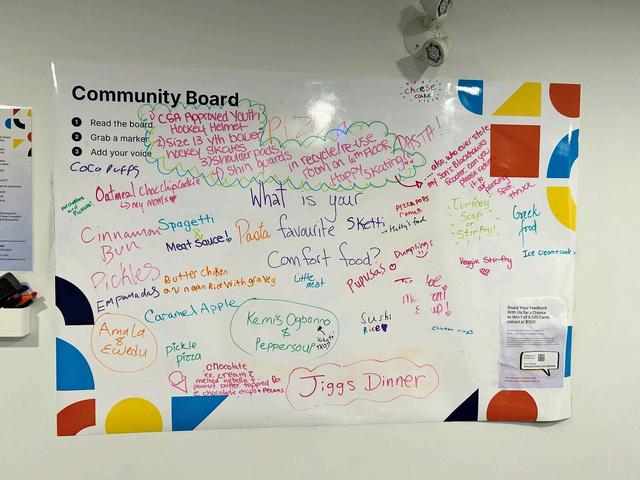 Community Board
1 Read the board
2 Grab a marker
3 Add your voice
1) CSA Approved Youth
Hockey Helmet
2) Size 13 yth bauer
hockey skates
3) Shoulder pads
4) Shin guards
in recycle/re use
room on 1st floor
Happy skating!
PIZZA
PASTA!
cheese
cake
... also who ever stole
my son's Black
Scooter can you
please return
it to
parking
spot
thnx.
Coco Puffs
Oatmeal choc chip cookie
my mom's
What is your
favourite
Comfort food?
Cinnamon
Bun
Spagetti
&
Meat Sauce!
Pasta
Sketti
PIZZA POPS
ramen
Turkey
Soup
Stir fry!
Greek
food
Ice cream + cookie
Veggie Stir-fry
Pickles
Butter Chicken
Rice with gravy
Little
meat
Dumplings
Pupusas
Empamadas
Caramel Apple
Amala
&
Ewedu
Kemi's Ogbono
&
Peppersoup
Sushi
Rice
chicken wings
pickle
pizza
Chocolate
ice cream &
melted nutella &
peanut butter topped
& chocolate chips & pecans
Jiggs Dinner
Share Your Feedback
With Us for a Chance
to Win 1 of 5 Gift Cards
valued at $100!